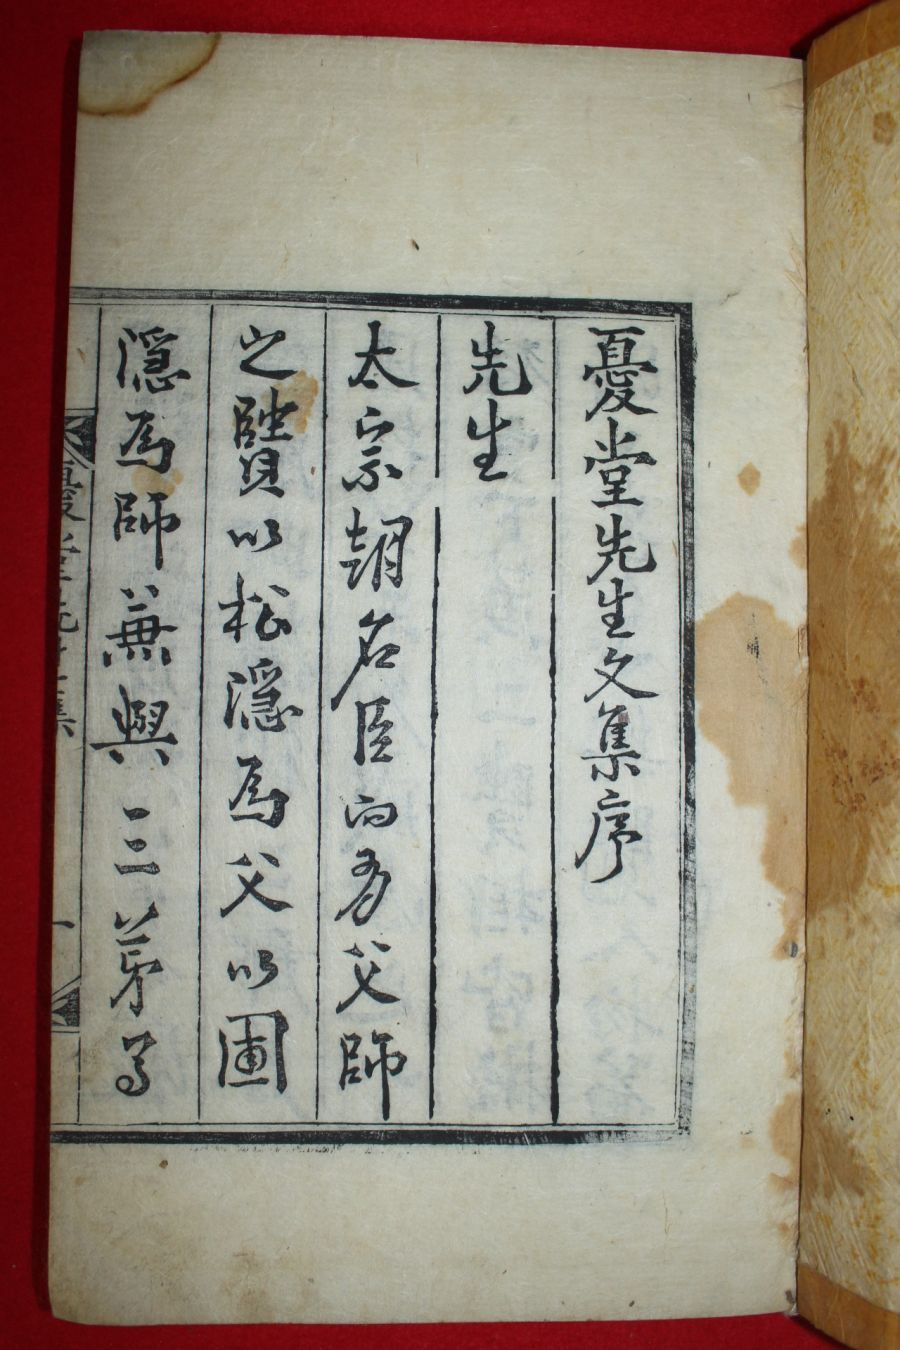 憂堂先生文集序
先生
太宗朝名臣而有父師
之贒以松隱為父以圃
隱為師兼與三苐
憂堂先生文集
一